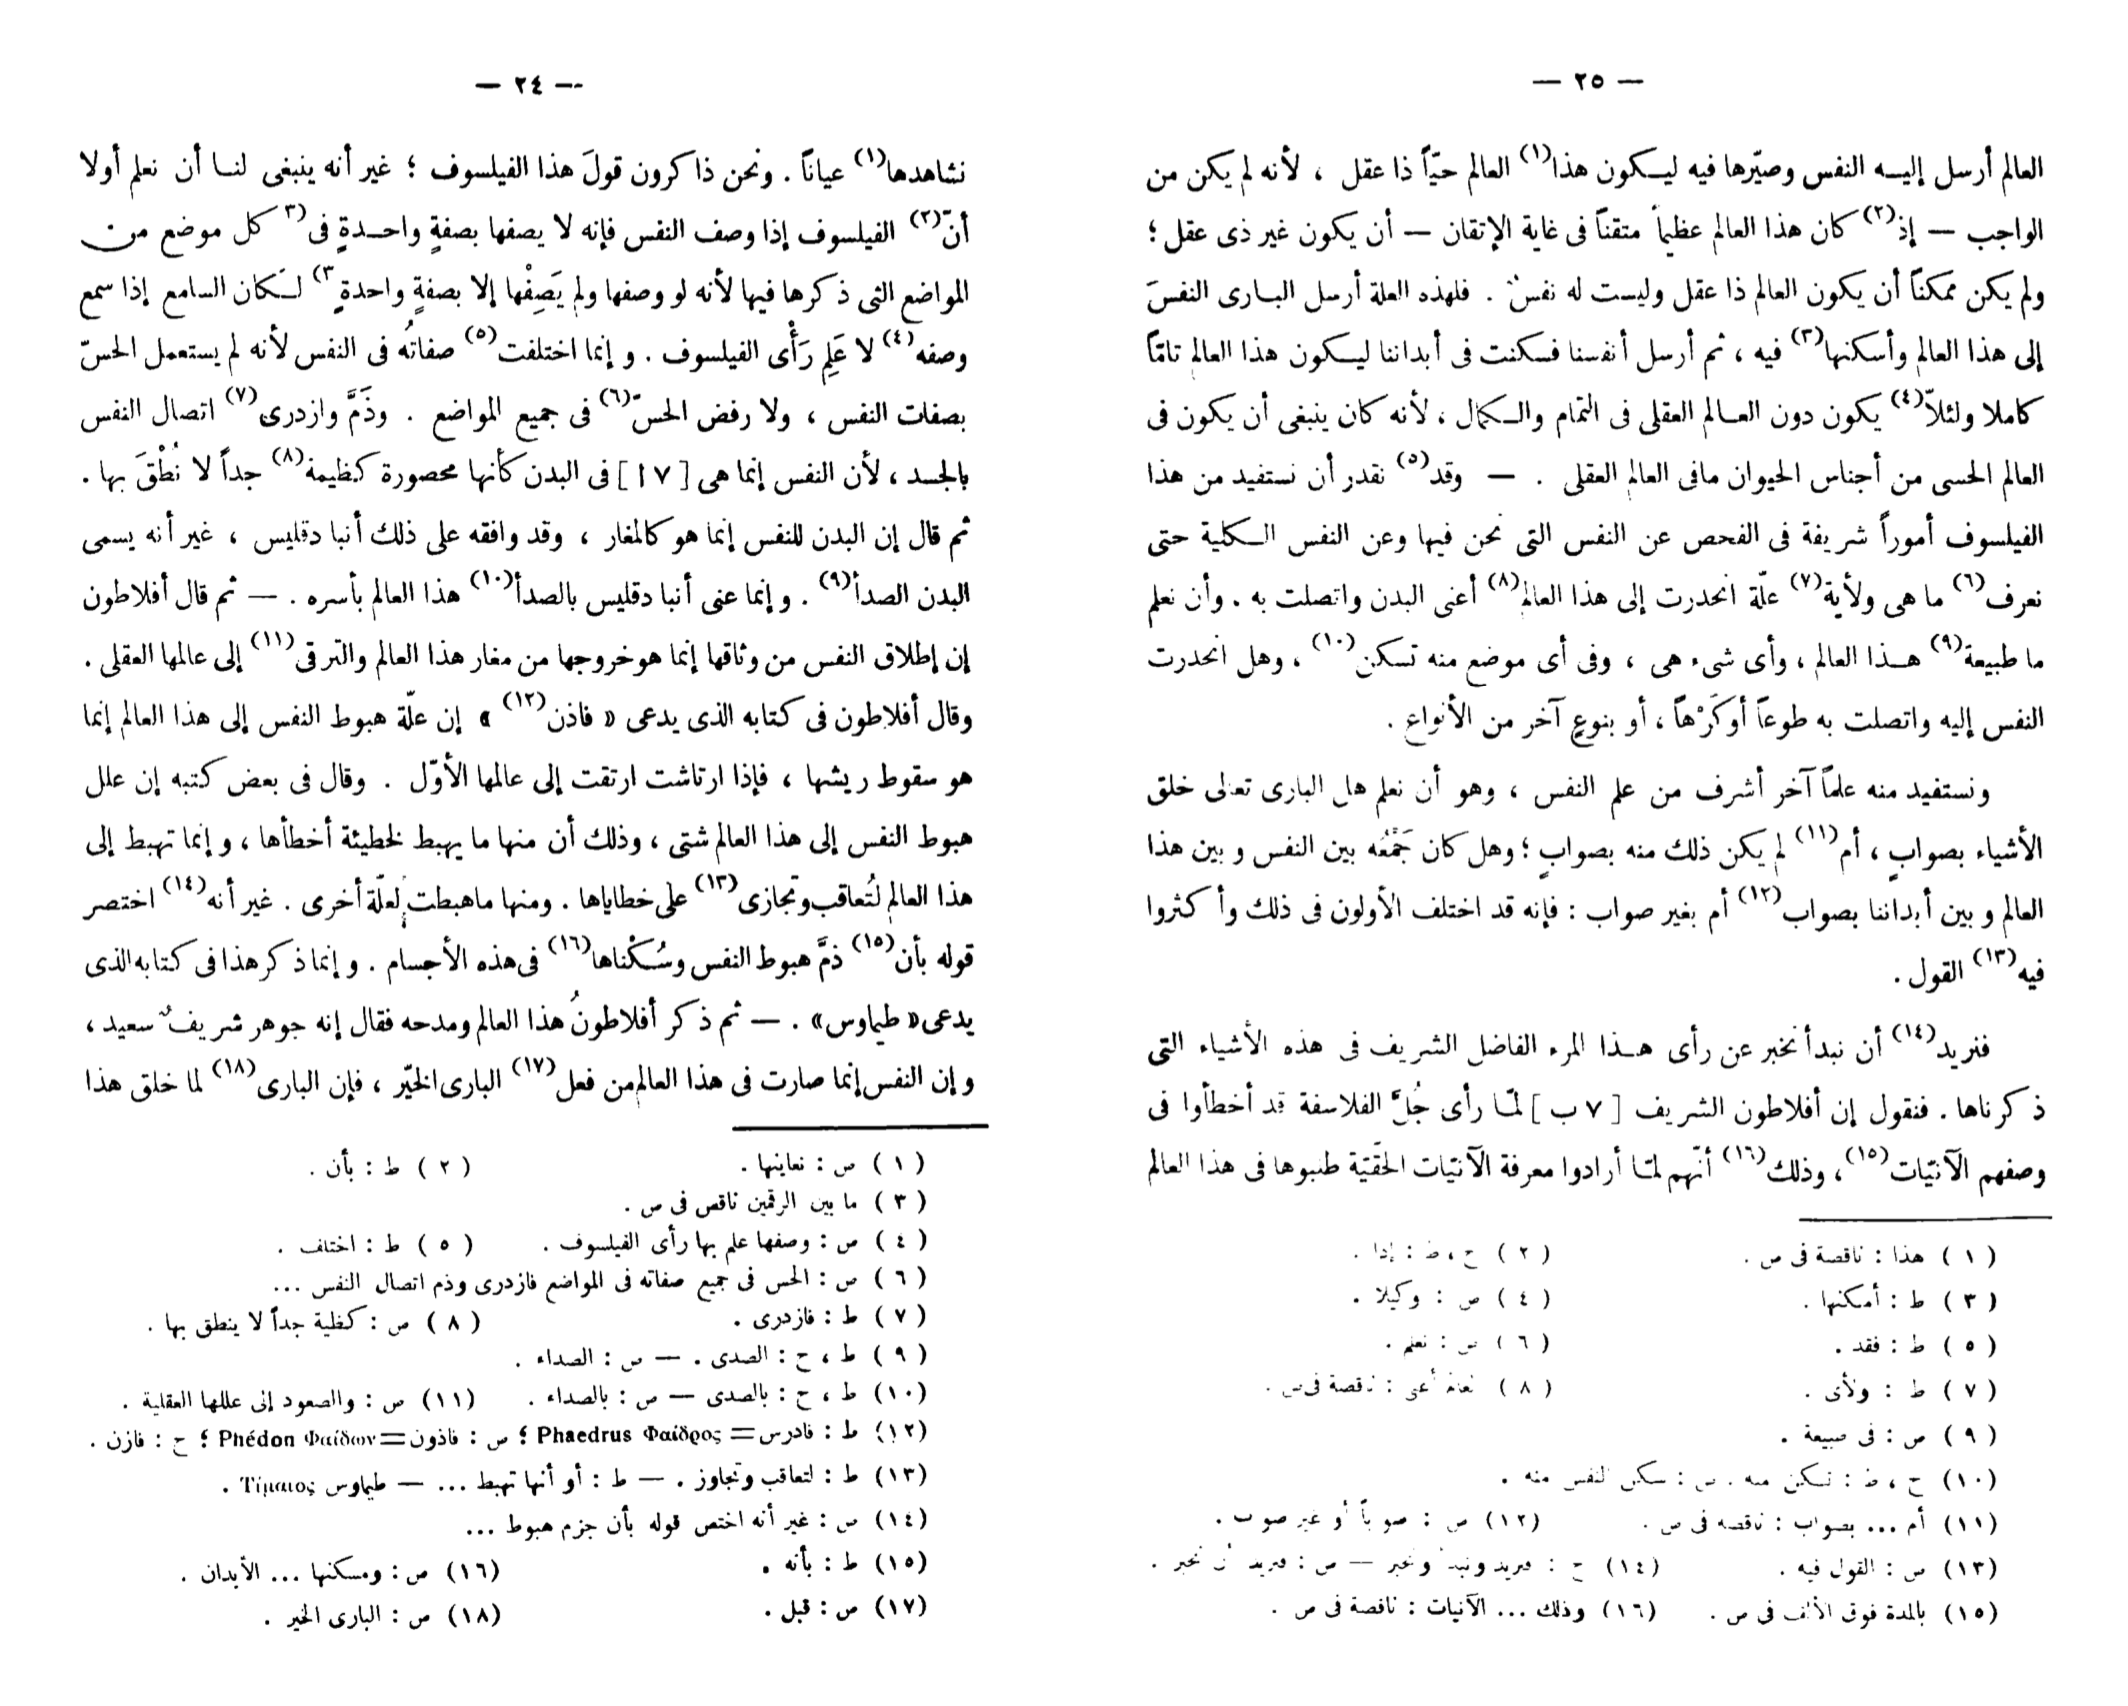 — ٢٤ —
نشاهدها(١) عياناً . ونحن ذاكرون قولَ هذا الفيلسوف ؛ غير أنه ينبغى لنا أن نعلم أولا
أنّ(٢) الفيلسوف إذا وصف النفس فإنه لا يصفها بصفةٍ واحدةٍ فى(٣ كل موضع من
المواضع التى ذكرها فيها لأنه لو وصفها ولم يَصِفْها إلا بصفةٍ واحدةٍ ٣) لكان السامع إذا سمع
وصفه(٤) لا عَلِم رَأْى الفيلسوف . وإنما اختلفت(٥) صفاتُه فى النفس لأنه لم يستعمل الحسّ
بصفات النفس ، ولا رفض الحسّ(٦) فى جميع المواضع . وذَمَّ وازدرى(٧) اتصال النفس
بالجسد ، لأن النفس إنما هى [ ٧ ا ] فى البدن كأنها محصورة كظيمة(٨) جداً لا نُطْقَ بها .
ثم قال إن البدن للنفس إنما هو كالمغار ، وقد وافقه على ذلك أنبا دقليس ، غير أنه يسمى
البدن الصدأ(٩) . وإنما عنى أنبا دقليس بالصدأ(١٠) هذا العالم بأسره . — ثم قال أفلاطون
إن إطلاق النفس من وثاقها إنما هو خروجها من مغار هذا العالم والترقى(١١) إلى عالمها العقلى .
وقال أفلاطون فى كتابه الذى يدعى « فاذن(١٢) » إن علّة هبوط النفس إلى هذا العالم إنما
هو سقوط ريشها ، فإذا ارتاشت ارتقت إلى عالمها الأوّل . وقال فى بعض كتبه إن علل
هبوط النفس إلى هذا العالم شتى ، وذلك أن منها ما يهبط لخطيئة أخطأها ، وإنما تهبط إلى
هذا العالم لتُعاقب وتجازى(١٣) على خطاياها . ومنها ماهبطت لعلّة أخرى . غير أنه(١٤) اختصر
قوله بأن(١٥) ذمَّ هبوط النفس وسُكْناها(١٦) فى هذه الأجسام . وإنما ذكر هذا فى كتابه الذى
يدعى « طيماوس» . — ثم ذكر أفلاطونُ هذا العالم ومدحه فقال إنه جوهر شريفٌ سعيد ،
وإن النفس إنما صارت فى هذا العالم من فعل(١٧) البارى الخيّر ، فإن البارى(١٨) لما خلق هذا
( ١ ) ص : نعاينها . ( ٢ ) ط : بأن .
( ٣ ) ما بين الرقمين ناقص فى ص .
( ٤ ) ص : وصفها علم بها رأى الفيلسوف . ( ٥ ) ط : اختلف .
( ٦ ) ص : الحس فى جميع صفاته فى المواضع فازدرى وذم اتصال النفس ...
( ٧ ) ط : فازدرى . ( ٨ ) ص : كظية جداً لا ينطق بها .
( ٩ ) ط ، ح : الصدى . — ص : الصداء .
(١٠) ط ، ح : بالصدى — ص : بالصداء . (١١) ص : والصعود إلى عللها العقلية .
(١٢) ط : فادرس = Phaedrus Φαίδρος ؛ ص : فاذون = Phédon Φαίδων ؛ ح : فازن .
(١٣) ط : لتعاقب وتجاوز . — ط : أو أنها تهبط ... — طيماوس Τίμαιος .
(١٤) ص : غير أنه اختص قوله بأن جزم هبوط ...
(١٥) ط : بأنه . (١٦) ص : ومسكنها ... الأبدان .
(١٧) ص : قبل . (١٨) ص : البارى الخير .
— ٢٥ —
العالم أرسل إليه النفس وصيّرها فيه ليكون هذا(١) العالم حيّاً ذا عقل ، لأنه لم يكن من
الواجب — إذ(٢) كان هذا العالم عظيماً متقناً فى غاية الإتقان — أن يكون غير ذى عقل ؛
ولم يكن ممكناً أن يكون العالم ذا عقل وليست له نفسٌ . فلهذه العلة أرسل البارى النفسَ
إلى هذا العالم وأسكنها(٣) فيه ، ثم أرسل أنفسنا فسكنت فى أبداننا ليكون هذا العالم تامّاً
كاملا ولئلاّ(٤) يكون دون العالم العقلى فى التمام والكمال ، لأنه كان ينبغى أن يكون فى
العالم الحسى من أجناس الحيوان مافى العالم العقلى . — وقد(٥) نقدر أن نستفيد من هذا
الفيلسوف أموراً شريفة فى الفحص عن النفس التى نحن فيها وعن النفس الكلية حتى
نعرف(٦) ما هى ولأية(٧) علّة انحدرت إلى هذا العالم(٨) أعنى البدن واتصلت به . وأن نعلم
ما طبيعة(٩) هذا العالم ، وأى شىء هى ، وفى أى موضع منه تسكن(١٠) ، وهل انحدرت
النفس إليه واتصلت به طوعاً أو كَرْهاً ، أو بنوعٍ آخر من الأنواع .
ونستفيد منه علماً آخر أشرف من علم النفس ، وهو أن نعلم هل البارى تعالى خلق
الأشياء بصوابٍ ، أم(١١) لم يكن ذلك منه بصوابٍ ؛ وهل كان جَمْعُه بين النفس وبين هذا
العالم وبين أبداننا بصواب(١٢) أم بغير صواب : فإنه قد اختلف الأولون فى ذلك وأكثروا
فيه(١٣) القول .
فنريد(١٤) أن نبدأ نخبر عن رأى هذا المرء الفاضل الشريف فى هذه الأشياء التى
ذكرناها . فنقول إن أفلاطون الشريف [ ٧ ب ] لمّا رأى جُلَّ الفلاسفة قد أخطأوا فى
وصفهم الآنيّات(١٥) ، وذلك(١٦) أنّهم لمّا أرادوا معرفة الآنيّات الحقّيّة طلبوها فى هذا العالم
( ١ ) هذا : ناقصة فى ص . ( ٢ ) ح ، ط : إذا .
( ٣ ) ط : أمكنها . ( ٤ ) ص : وكيلا .
( ٥ ) ط : فقد . ( ٦ ) ص : نعلم .
( ٧ ) ط : ولأى . ( ٨ ) العالم أعنى : ناقصة فى ص .
( ٩ ) ص : فى طبيعة .
(١٠) ح ، ط : تسكن منه . ص : سكن النفس منه .
(١١) أم ... بصواب : ناقصة فى ص . (١٢) ص : صواباً أو غير صواب .
(١٣) ص : القول فيه . (١٤) ح : فنريد ونبدأ ونخبر — ص : فنريد أن نخبر .
(١٥) بالمدة فوق الألف فى ص . (١٦) وذلك ... الآنيات : ناقصة فى ص .